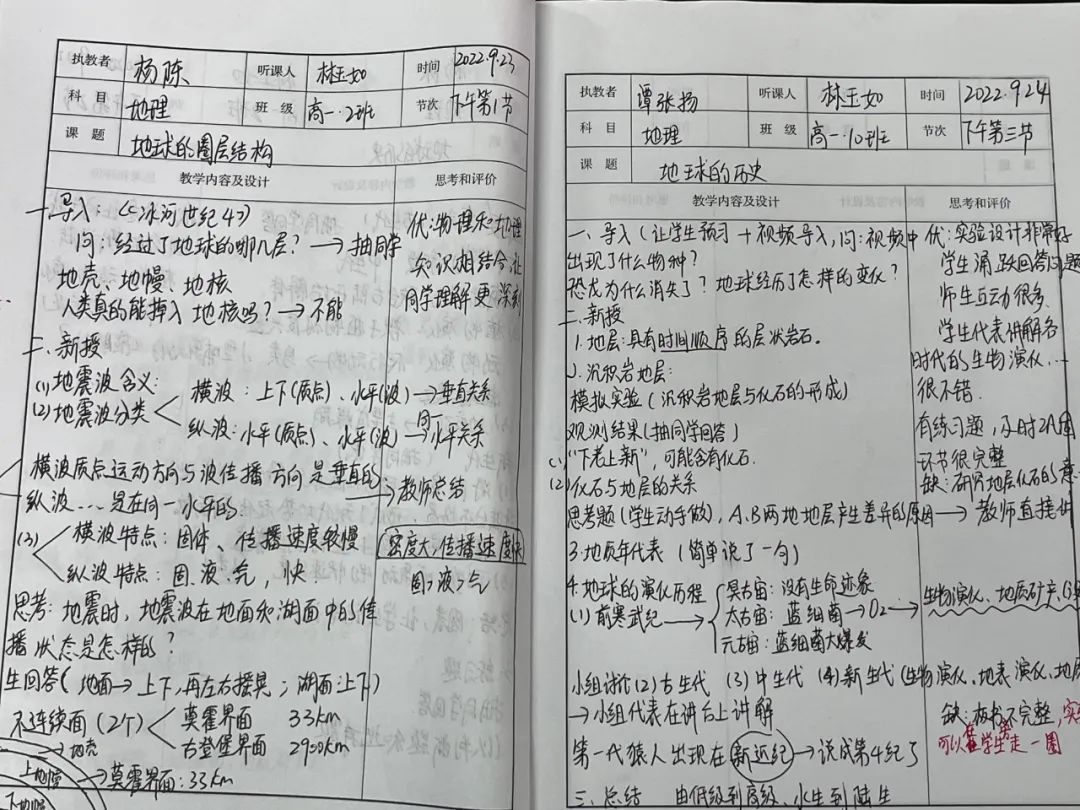 执教者 杨陈 听课人 林玉如 时间 2022.9.23
科目 地理 班级 高一·2班 节次 下午第1节
课题 地球的圈层结构
教学内容及设计 思考和评价
一、导入：《冰河世纪4》
问：经过了地球的哪几层？→抽同学
地壳、地幔、地核
人类真的能掉入地核吗？→不能
优：物理和地理
知识相结合，让
同学理解更深刻
二、新授
(1)地震波含义：
(2)地震波分类
横波：上下(质点)、水平(波)→垂直关系
纵波：水平(质点)、水平(波)→同一水平关系
横波质点运动方向与波传播方向是垂直的
纵波...是在同一水平的
→教师总结
(3)
横波特点：固体、传播速度较慢
纵波特点：固、液、气，快
密度大、传播速度快
固>液>气
思考：地震时，地震波在地面和湖面中的传
播状态是怎样的？
生回答(地面→上下，再左右摇晃；湖面：上下)
不连续面(2个)
莫霍界面 33km
古登堡界面 2900km
→地壳
上地幔→莫霍界面：33km
下地幔
执教者 谭张扬 听课人 林玉如 时间 2022.9.24
科目 地理 班级 高一·10班 节次 下午第三节
课题 地球的历史
教学内容及设计 思考和评价
一、导入(让学生预习＋视频导入，问：视频中
出现了什么物种？
恐龙为什么消失了？地球经历了怎样的变化？
二、新授
1.地层：具有时间顺序的层状岩石。
2.沉积岩地层：
模拟实验(沉积岩地层与化石的形成)
观测结果(抽同学回答)
(1)"下老上新"，可能含有化石.
(2)化石与地层的关系
思考题(学生动手做)，A.B两地地层产生差异的原因→教师直接讲
优：实验设计非常好
学生涌跃回答问题
师生互动很多.
学生代表讲解各
时代的生物演化...
很不错.
有练习题，及时巩固
环节很完整
缺：研究地层化石的意
3.地质年代表(简单说了一句)
4.地球的演化历程
(1)前寒武纪→
冥古宙：没有生命迹象
太古宙：蓝细菌→O₂→生物演化、地质矿产
元古宙：蓝细菌大爆发
小组讨论(2)古生代 (3)中生代 (4)新生代(生物演化、地表演化、地质
→小组代表在讲台上讲解
第一代猿人出现在新近纪→说成第4纪了
缺：板书不完整，实
可以在学生走一圈
三、总结 由低级到高级、水生到陆生